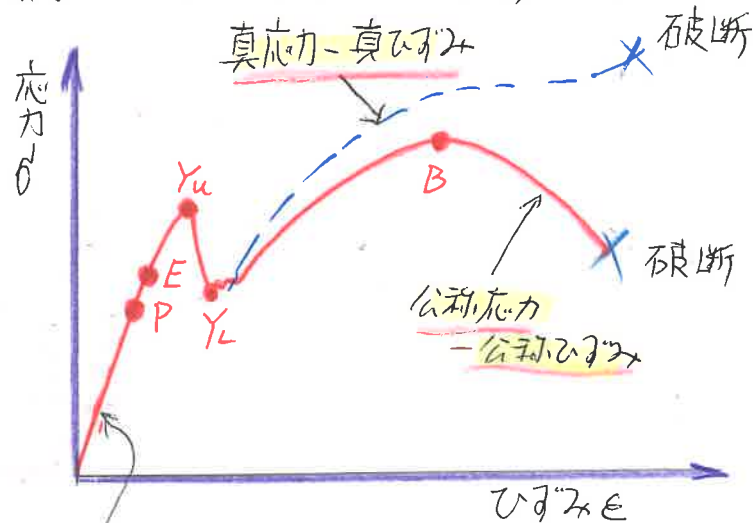 真応力-真ひずみ
破断
応力σ
Yu
B
E
P
YL
破断
公称応力
-公称ひずみ
ひずみε